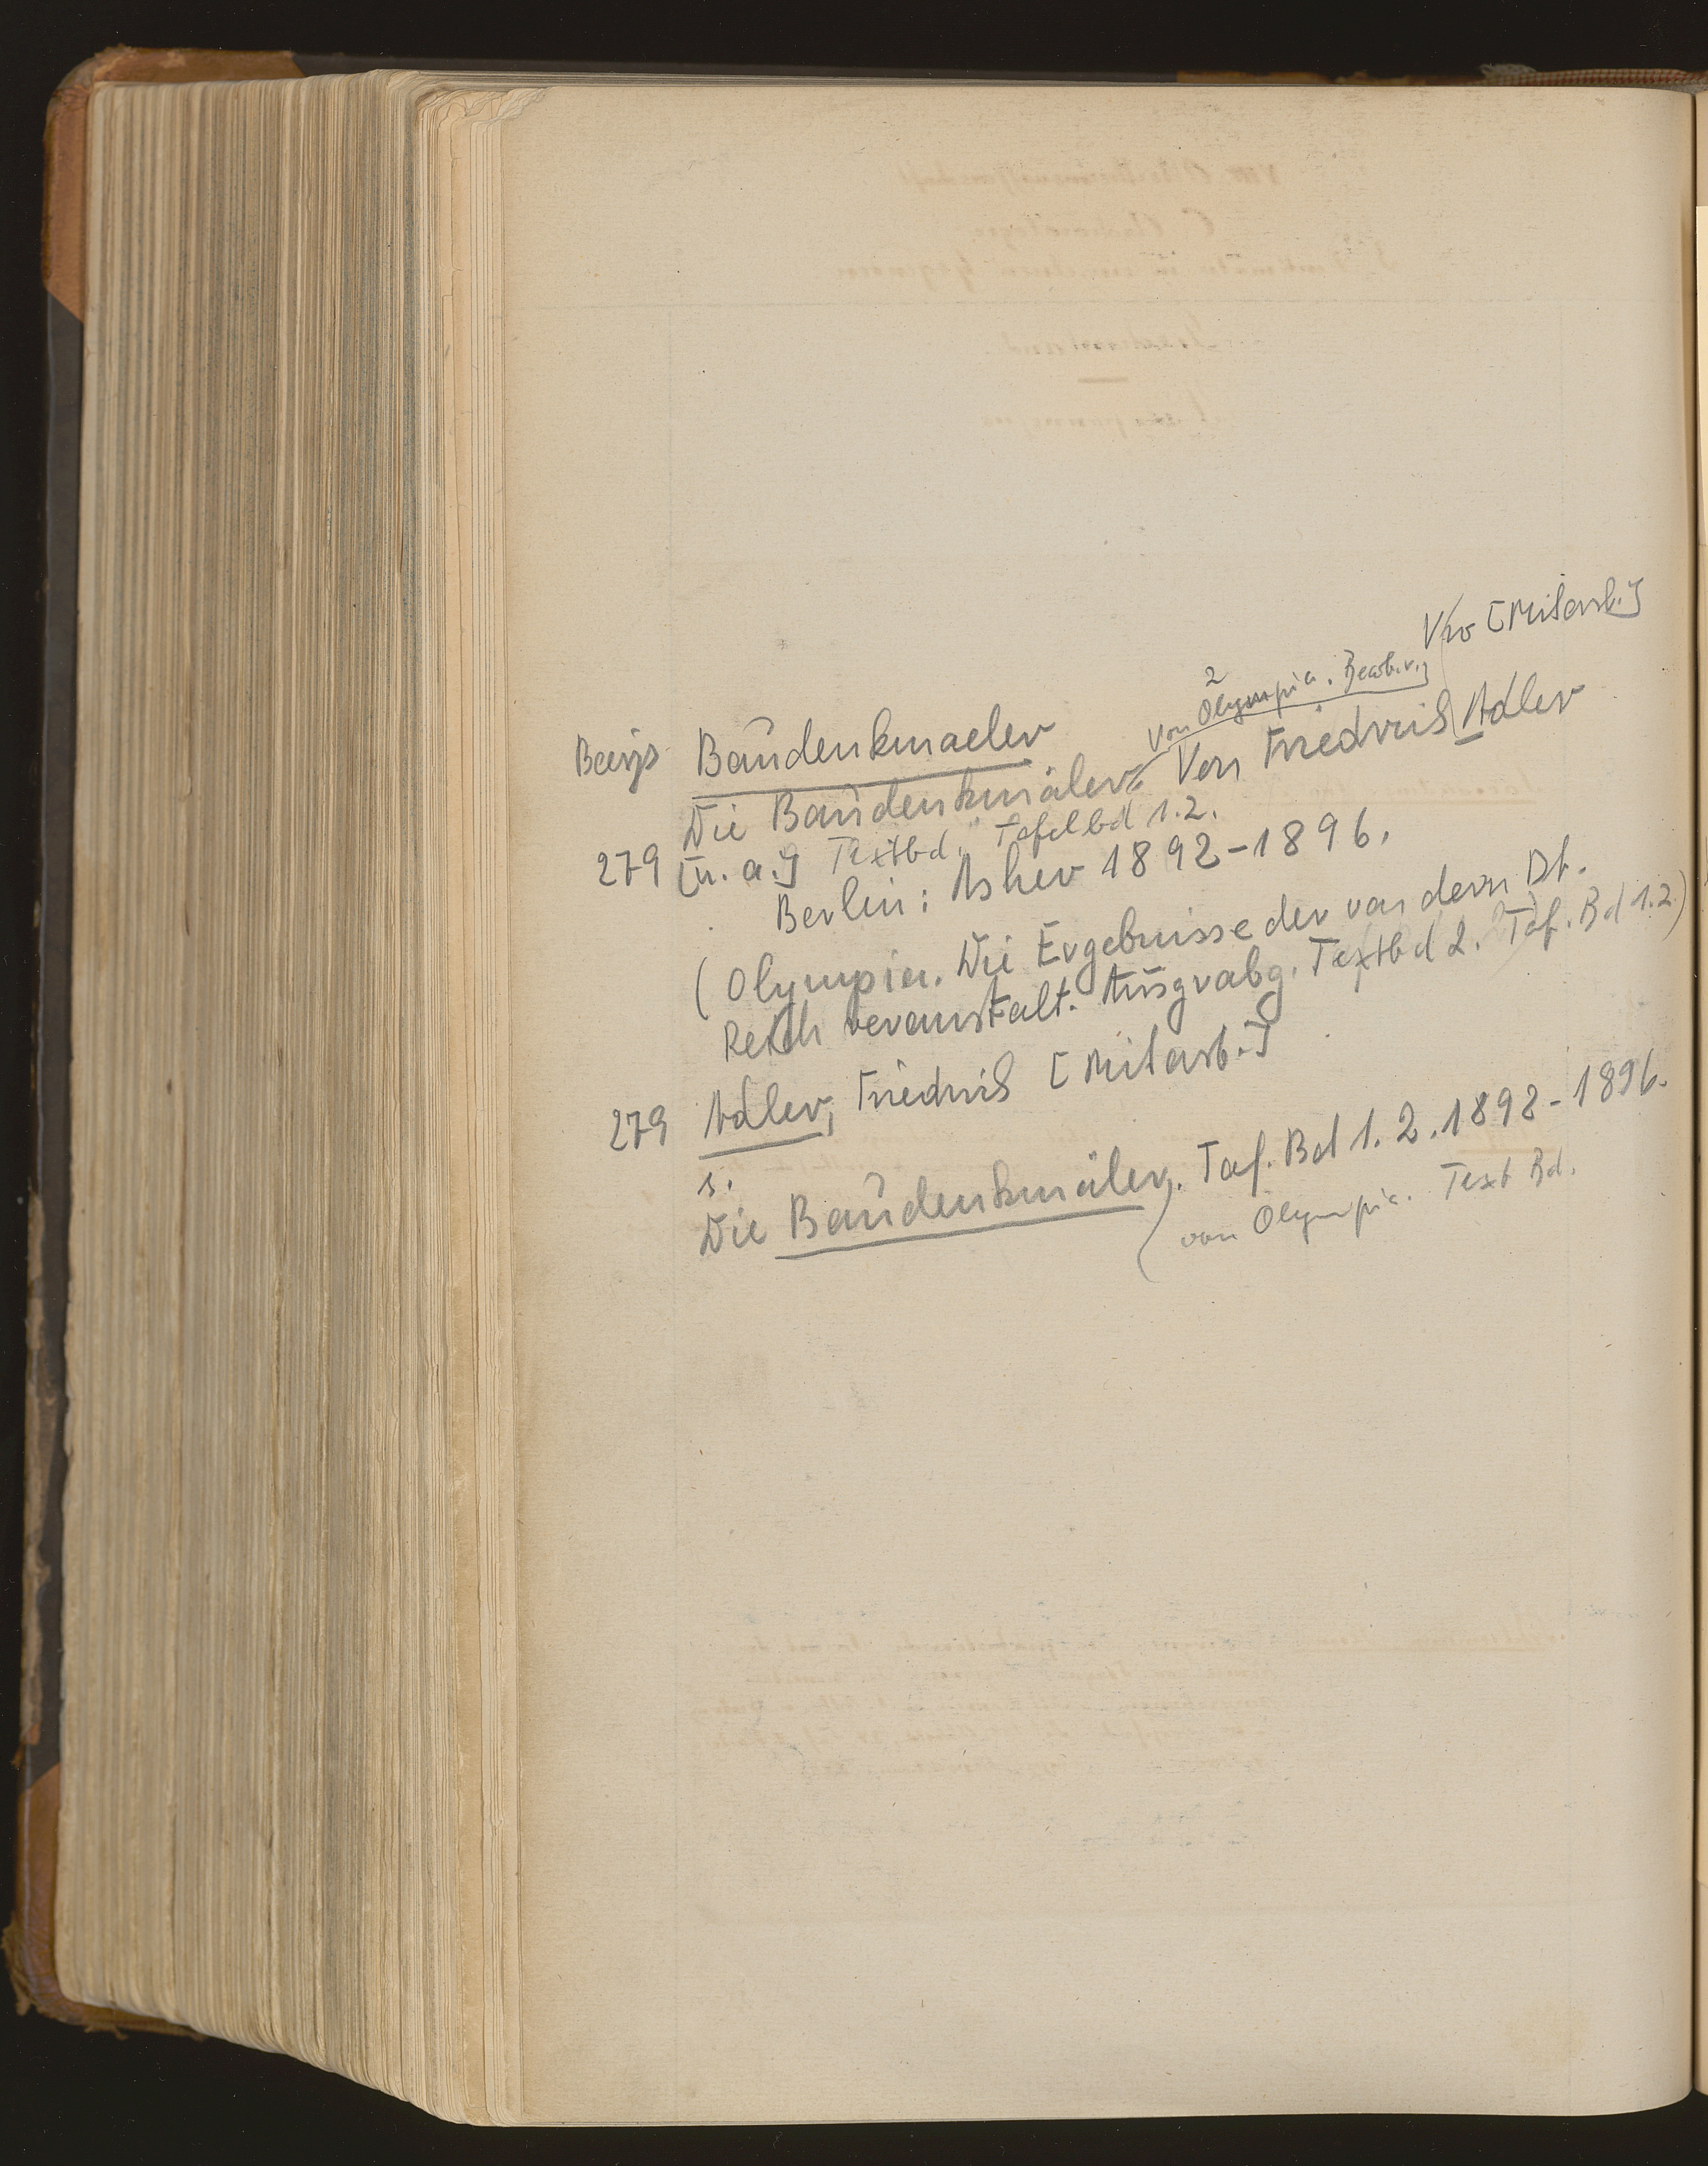 Vw [Mitarb.]
2
von Olympia. Bearb. v.]
Baudenkmaeler
Die Baudenkmäler. Von Friedrich Adler
279 [u. a.] Textbd. Tafelbd 1.2.
Berlin: Asher 1892-1896.
(Olympia. Die Ergebnisse der von dem Dt.
Reich veranstalt. Ausgrabg. Textbd 2. Taf. Bd 1.2)
279 Adler, Friedrich [Mitarb.]
s.
Die Baudenkmäler. Taf. Bd 1. 2. 1892-1896.
von Olympia. Text Bd.